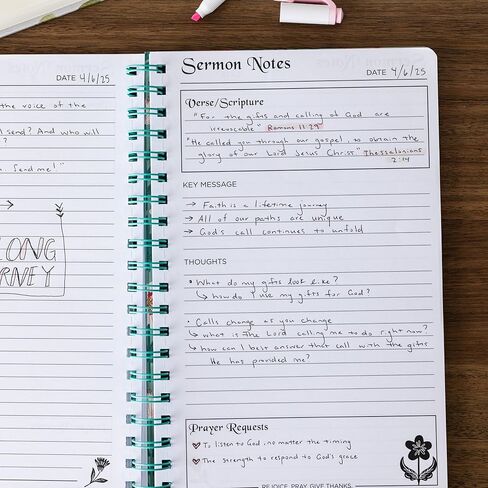 DATE 4/6/25
the voice of the
send? And who will
. Send me!"
LONG
RNEY
Sermon Notes
DATE 4/6/25
Verse/Scripture
"For the gifts and calling of God are
irrevocable" Romans 11:29
"He called you through our gospel, to obtain the
glory of our Lord Jesus Christ" Thessalonians
2:14
KEY MESSAGE
→ Faith is a lifetime journey
→ All of our paths are unique
→ God's call continues to unfold
THOUGHTS
• What do my gifts look like?
↳ how do I use my gifts for God?
• Calls change as you change
↳ what is the Lord calling me to do right now?
↳ how can I best answer that call with the gifts
He has provided me?
Prayer Requests
To listen to God no matter the timing
The strength to respond to God's grace
REJOICE. PRAY. GIVE THANKS.